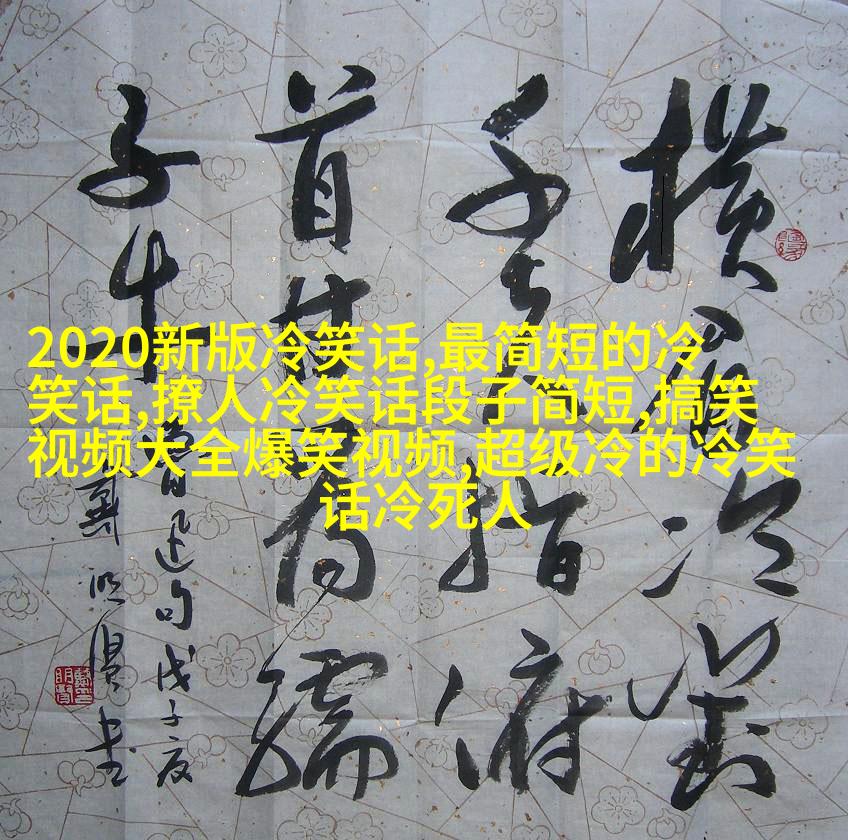 2020新版冷笑话,最简短的冷
笑话,撩人冷笑话段子简短,搞笑
视频大全爆笑视频,超级冷的冷笑
话冷死人
横眉冷對
千夫指俯
首甘为孺
子牛
魯迅句戊子夏
戴明賢书